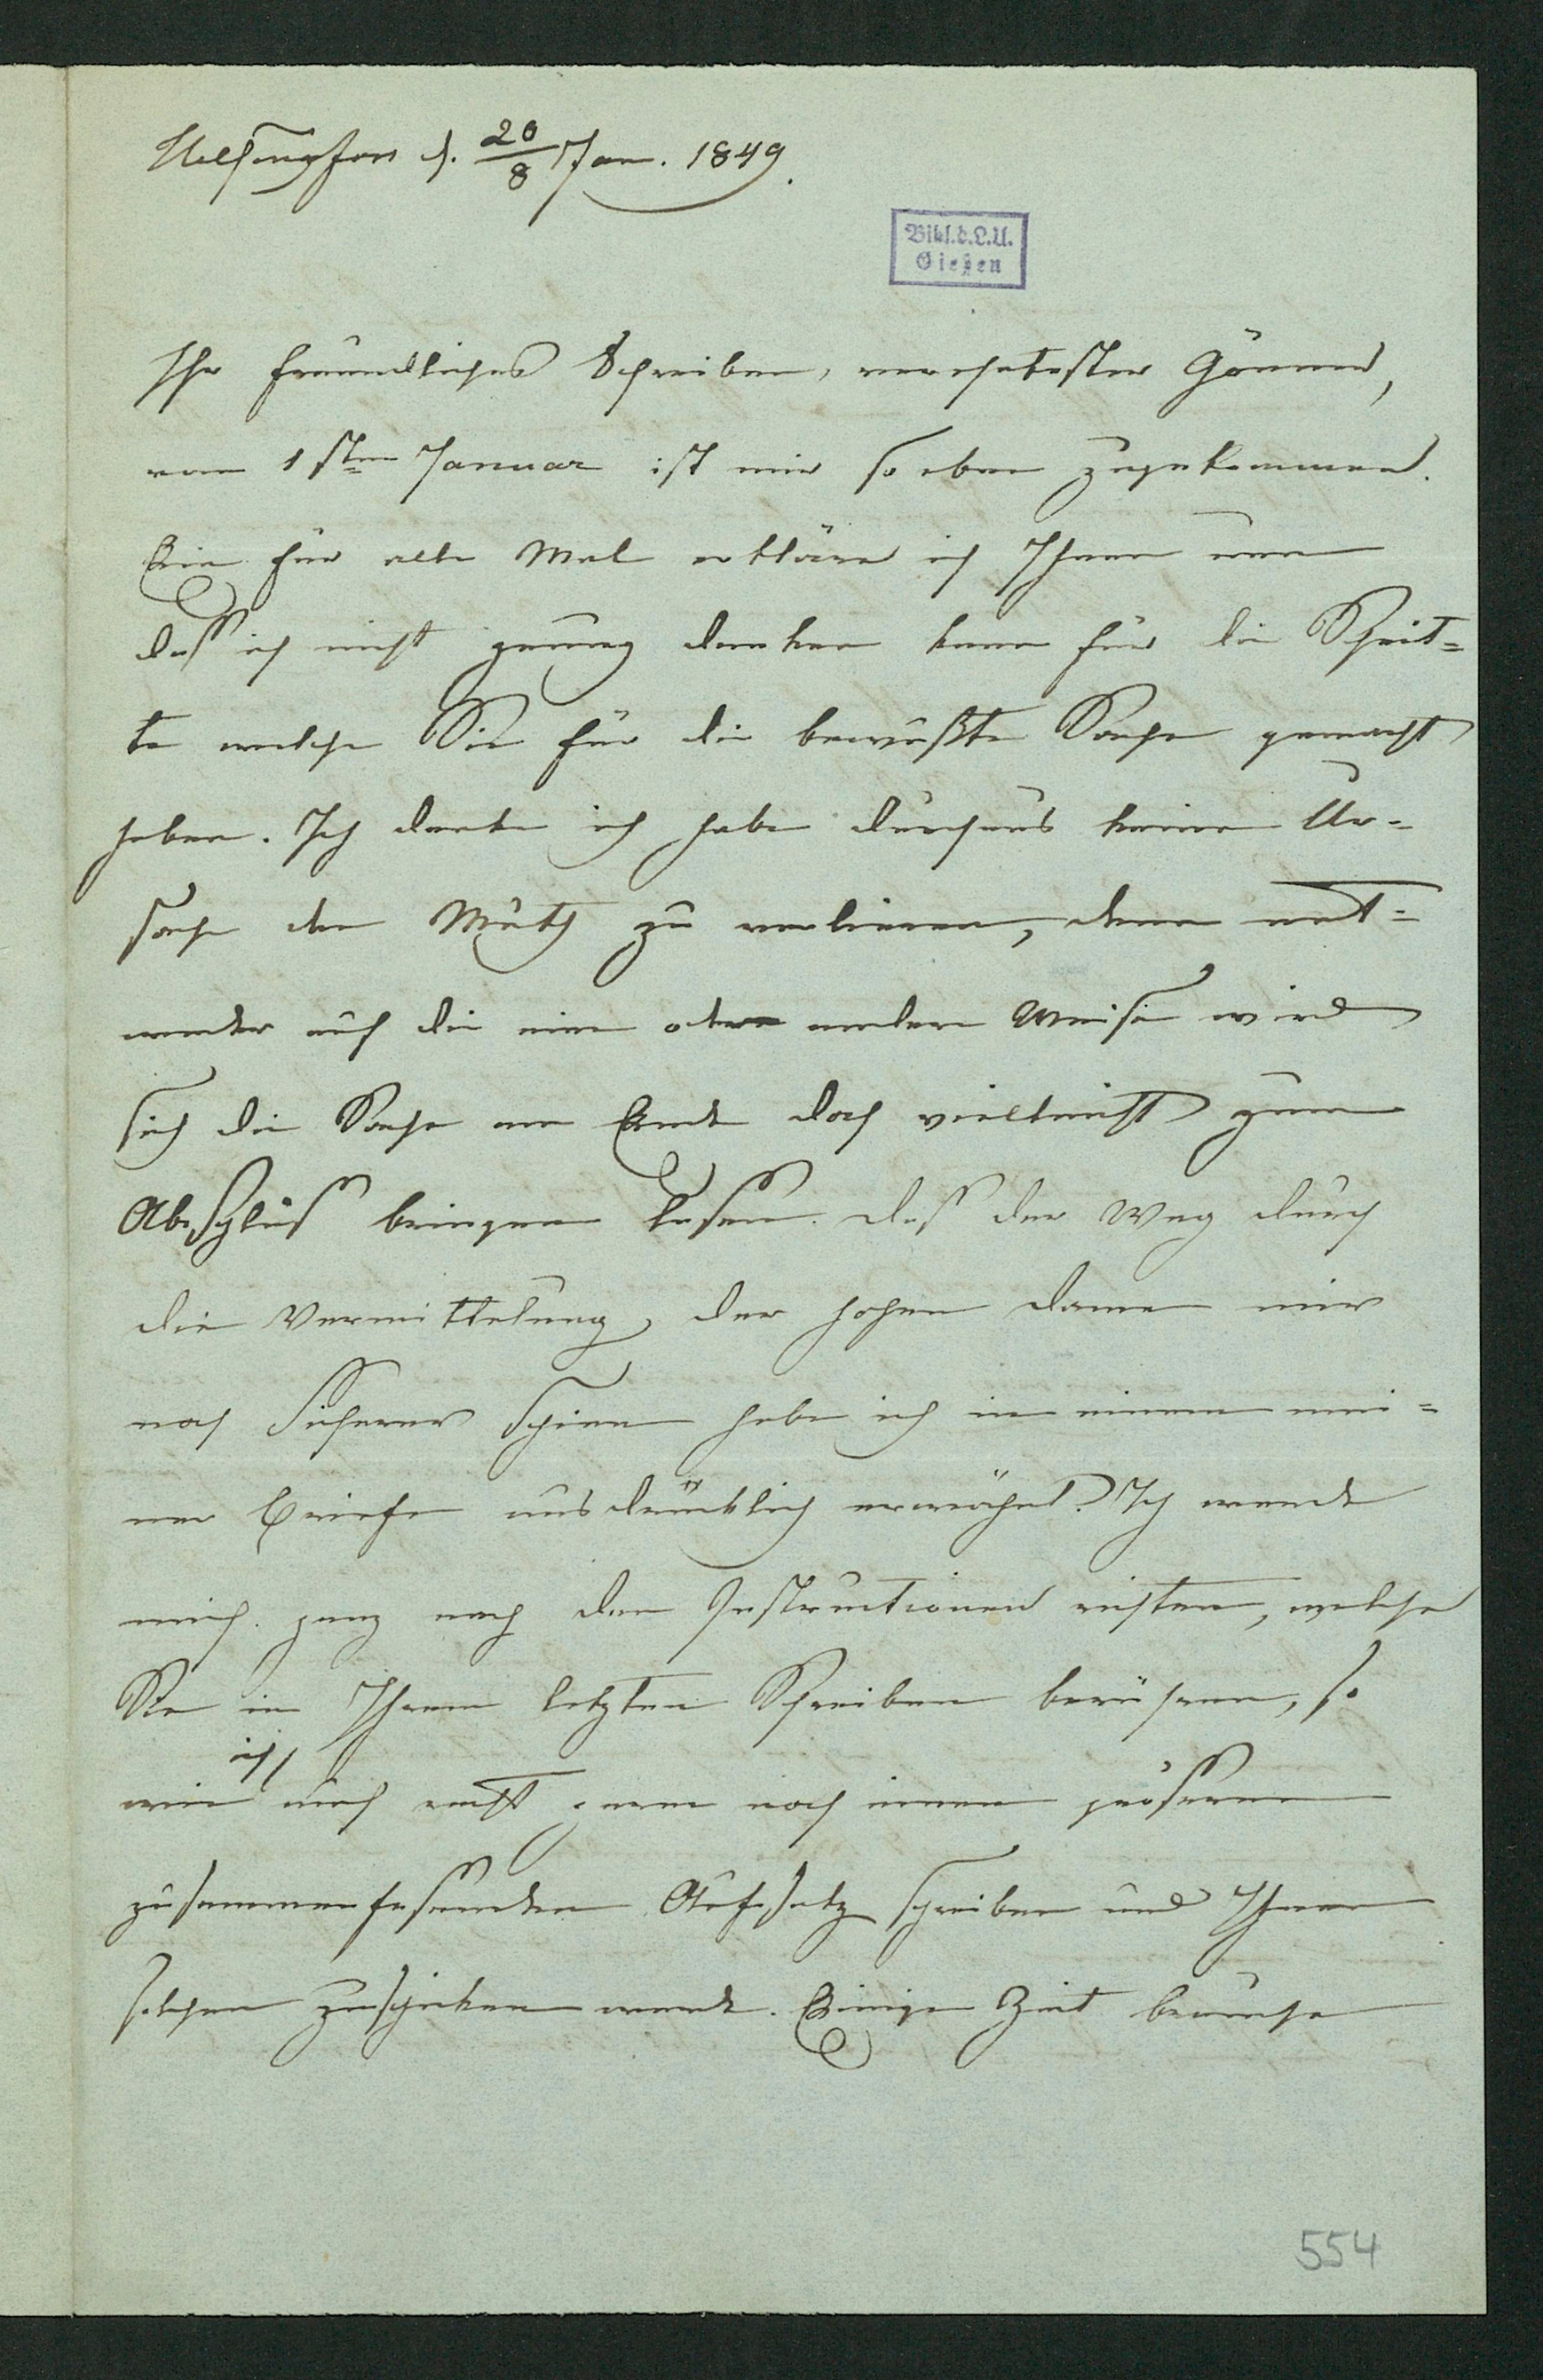 Helsingfors d. 20/8 Jan. 1849.
Bibl. d. L. U.
Gießen
Ihr freundliches Schreiben, verehrtester Gönner,
vom 1sten Januar ist mir so eben zugekommen.
Ein für alle Mal erkläre ich Ihnen nun
daß ich nicht genug danken kann für die Schrit-
te welche Sie für die bewußte Sache gemacht
haben. Ich denke ich habe durchaus keine Ur-
sache den Muth zu verlieren, denn ent-
weder auf die eine oder andere Weise wird
sich die Sache am Ende doch vielleicht zum
Abschluß bringen lassen. Daß der Weg durch
die Vermittelung der hohen Dame mir
noch sicherer schien habe ich in einem mei-
ner Briefe ausdrücklich erwähnt. Ich werde
mich ganz nach den Instructionen richten, welche
Sie in Ihrem letzten Schreiben berühren, so
wie ich auch recht gern noch einen größeren
zusammenfassenden Aufsatz schreiben und Ihnen
solchen zuschicken werde. Einige Zeit brauche
554